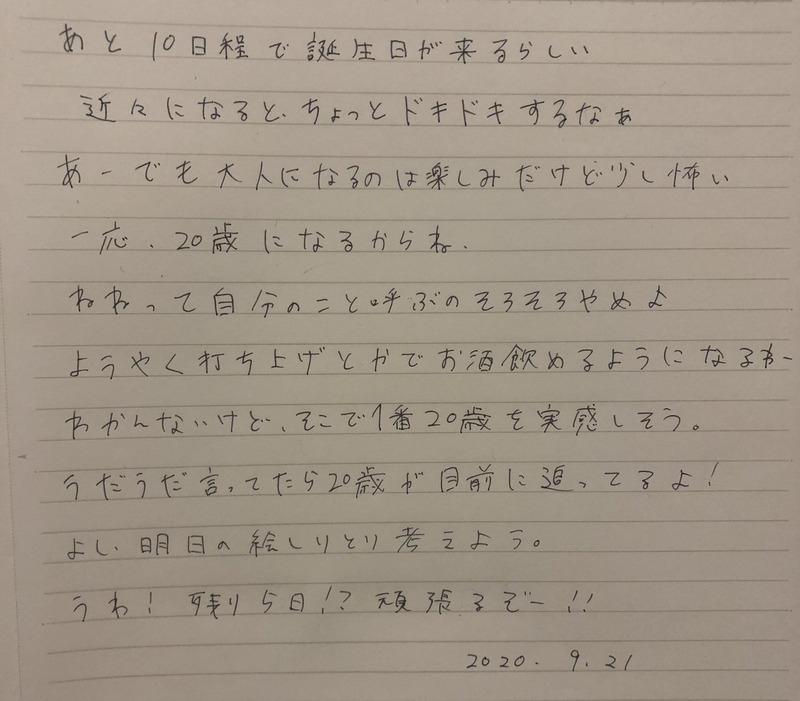 あと10日程で誕生日が来るらしい
近々になると、ちょっとドキドキするなぁ
あーでも大人になるのは楽しみだけど少し怖い
一応、20歳になるからね、
ねねって自分のこと呼ぶのそろそろやめよ
ようやく打ち上げとかでお酒飲めるようになるかー
わかんないけど、そこで1番20歳を実感しそう。
うだうだ言ってたら20歳が目前に追ってるよ!
よし、明日の絵しりとり考えよう。
うわ!残り5日!?頑張るぞー!!
2020. 9. 21